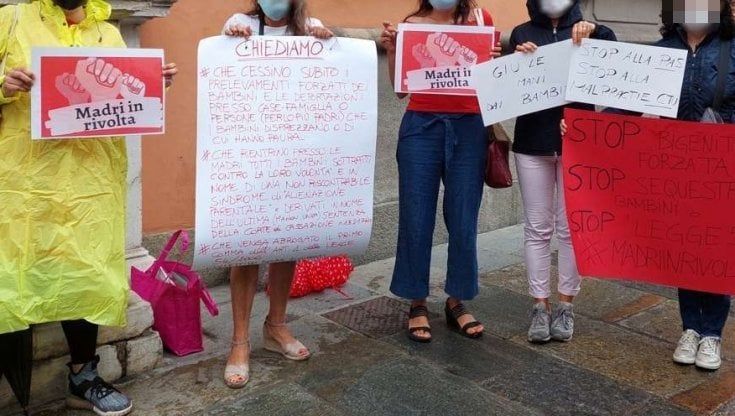 Madri in
rivolta
CHIEDIAMO
* CHE CESSINO SUBITO I
PRELEVAMENTI FORZATI DEI
BAMBINI E LE DEPORTAZIONI
PRESSO CASE FAMIGLIA O
PERSONE (PER LO PIÙ PADRI) CHE
BAMBINI DISPREZZANO O DI
CUI HANNO PAURA.
* CHE RIENTRINO PRESSO LE
MADRI TUTTI I BAMBINI SOTTRATTI
CONTRO LA LORO VOLONTA' E IN
NOME DI UNA NON RISCONTRABILE
SINDROME D'ALIENAZIONE
PARENTALE E DERIVATI IN NOME
DELL'ULTIMA SENTENZA
DELLA CORTE DI CASSAZIONE
* CHE VENGA ABROGATO IL PRIMO
COMMA LEGGE
Madri in
rivolta
GIÙ LE
MANI
DAI BAMBI
STOP ALLA PAS
STOP ALLA
MALPRACTICE CTU
STOP BIGENIT
FORZATA
STOP SEQUESTR
BAMBINI
STOP LEGGE
#MADRIINRIVOL